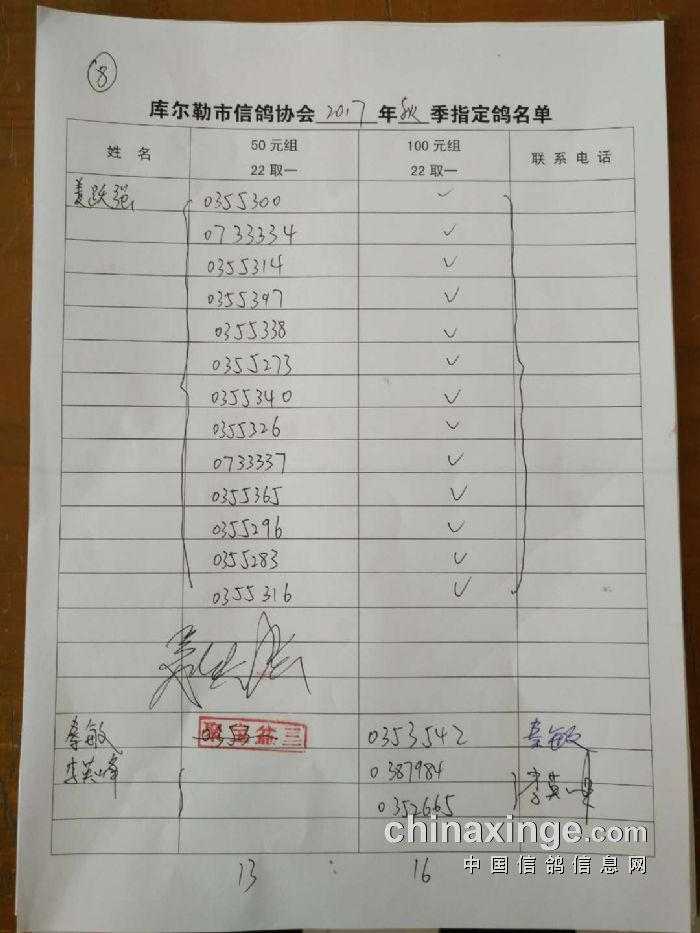 8
库尔勒市信鸽协会 2017 年 秋 季指定鸽名单
姓 名 50元组 22取一 100元组 22取一 联系电话
姜跃强 0355300 ✓
0733334 ✓
0355314 ✓
0355397 ✓
0355338 ✓
0355273 ✓
0355340 ✓
0355326 ✓
0733337 ✓
0355365 ✓
0355296 ✓
0355283 ✓
0355316 ✓
姜跃强
秦敏 0353542 秦敏
李英峰 0387984 李英峰
0352665
13 : 16
chinaxinge.com
中国信鸽信息网